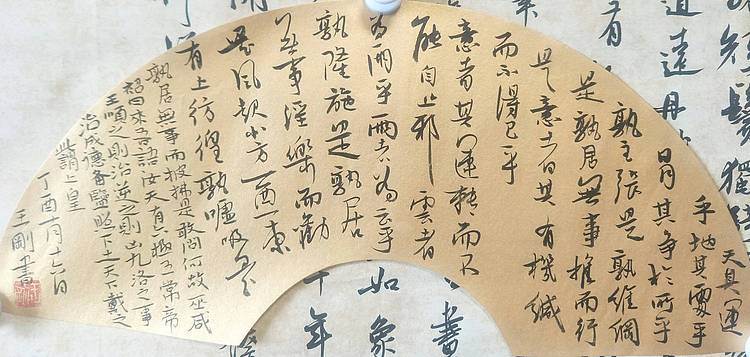 天其運
乎地其處乎
日月其爭於所乎
孰主張是孰維綱
是孰居無事推而行
是意者其有機緘
而不得已乎
意者其運轉而不
能自止邪雲者
為雨乎雨者為雲乎
孰隆施是孰居
無事淫樂而勸
是風起北方一西一東
有上彷徨孰噓吸是
孰居無事而披拂是敢問何故巫咸
祒曰來吾語汝天有六極五常帝
王順之則治逆之則凶九洛之事
治成德備監照下土天下戴之
此謂上皇
丁酉月十六日
王剛書
道遠
有
書
如象
年